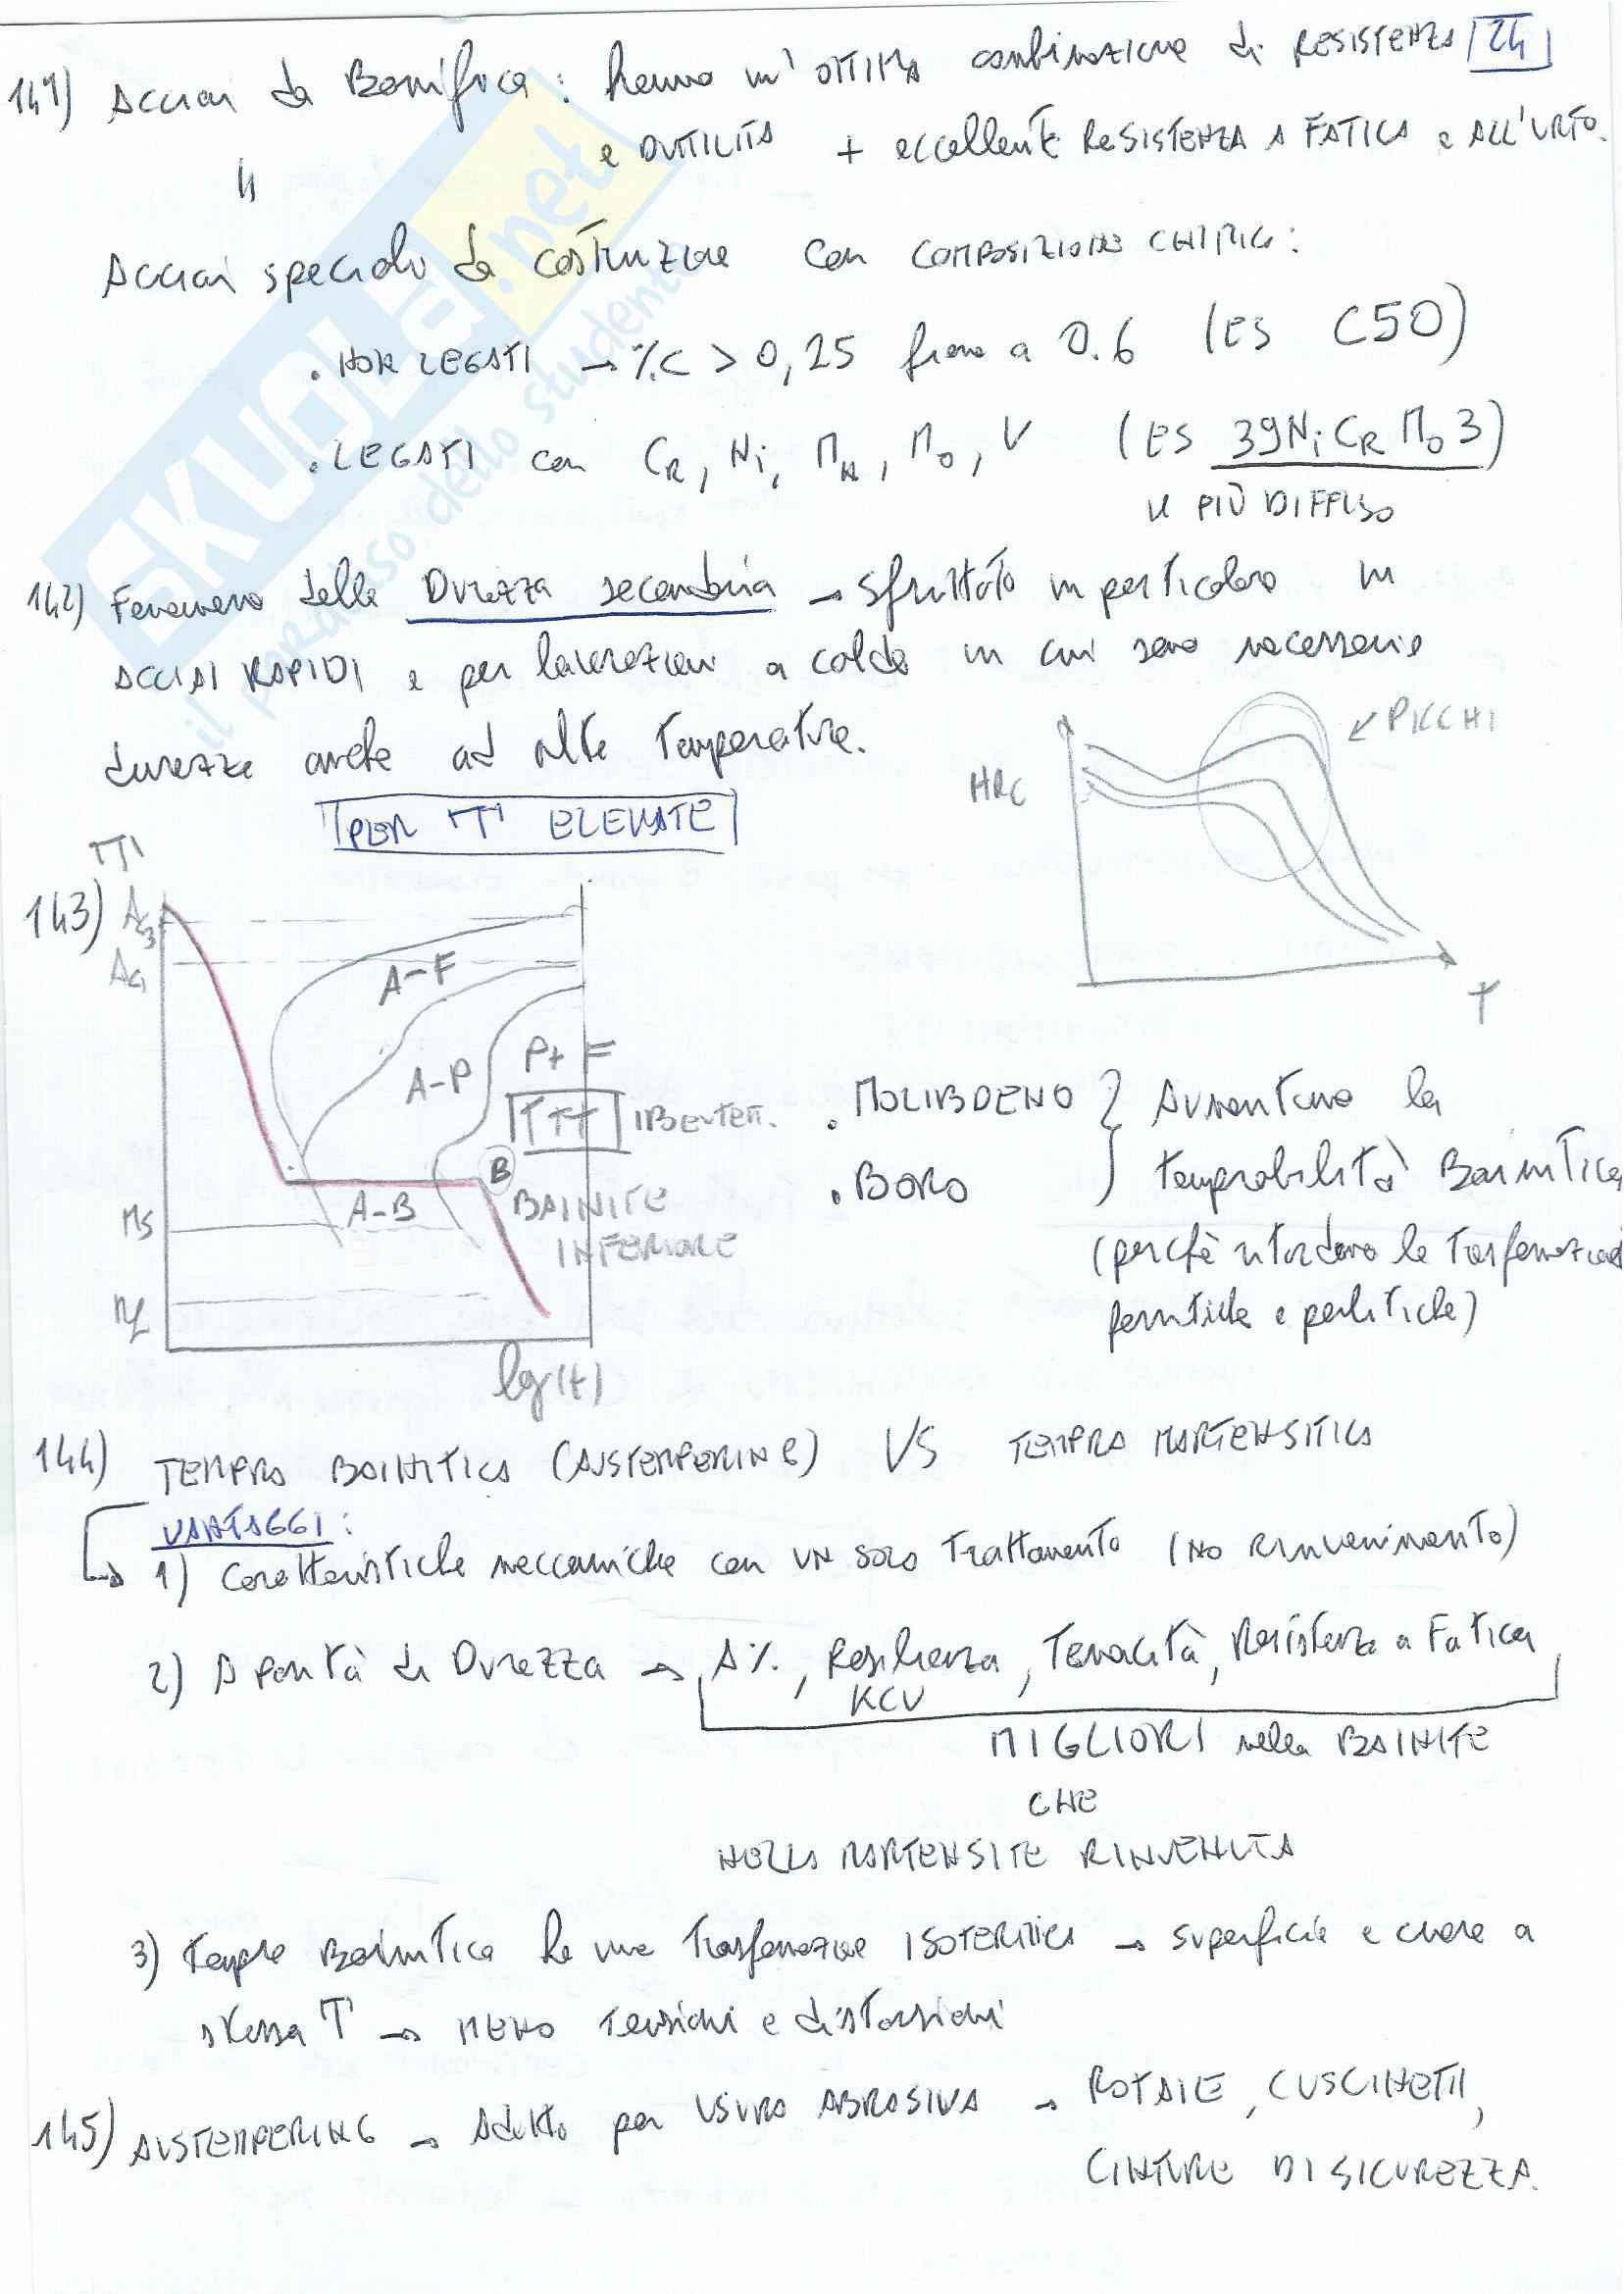 24
141) Acciai da Bonifica: hanno un'OTTIMA combinazione di RESISTENZA
e DUTTILITÀ + eccellente RESISTENZA A FATICA e ALL'URTO.
Acciai speciali da costruzione con COMPOSIZIONE CHIMICA:
. NON LEGATI → %C > 0,25 fino a 0.6 (ES C50)
. LEGATI con Cr, Ni, Mn, Mo, V (ES 39NiCrMo3)
IL PIÙ DIFFUSO
142) Fenomeno della Durezza secondaria → sfruttato in particolare in
ACCIAI RAPIDI e per lavorazioni a caldo in cui sono necessarie
durezze anche ad alte Temperature.
PER "T" ELEVATE
HRC
← PICCHI
T
143)
T
Ac3
Ac1
A-F
A-P
P+F
TTT
A-B
B
BAINITE
INFERIORE
Ms
Mf
lg(t)
. MOLIBDENO } Aumentano la
. BORO } temprabilità Bainitica
(perché ritardano le Trasformazioni
ferritiche e perlitiche)
144) TEMPRA BAINITICA (AUSTEMPERING) VS TEMPRA MARTENSITICA
VANTAGGI:
1) Caratteristiche meccaniche con UN SOLO Trattamento (NO RINVENIMENTO)
2) A parità di Durezza → A%, Resilienza, Tenacità, Resistenza a Fatica
KCV
MIGLIORI nella BAINITE
CHE
NELLA MARTENSITE RINVENUTA
3) Tempra Bainitica ha una Trasformazione ISOTERMICA → superficie e cuore a
stessa T → MENO Tensioni e distorsioni
145) AUSTEMPERING → Adatto per USURA ABRASIVA → ROTAIE, CUSCINETTI,
CINTURE DI SICUREZZA.
SKUOLA.net
il paradiso dello studente